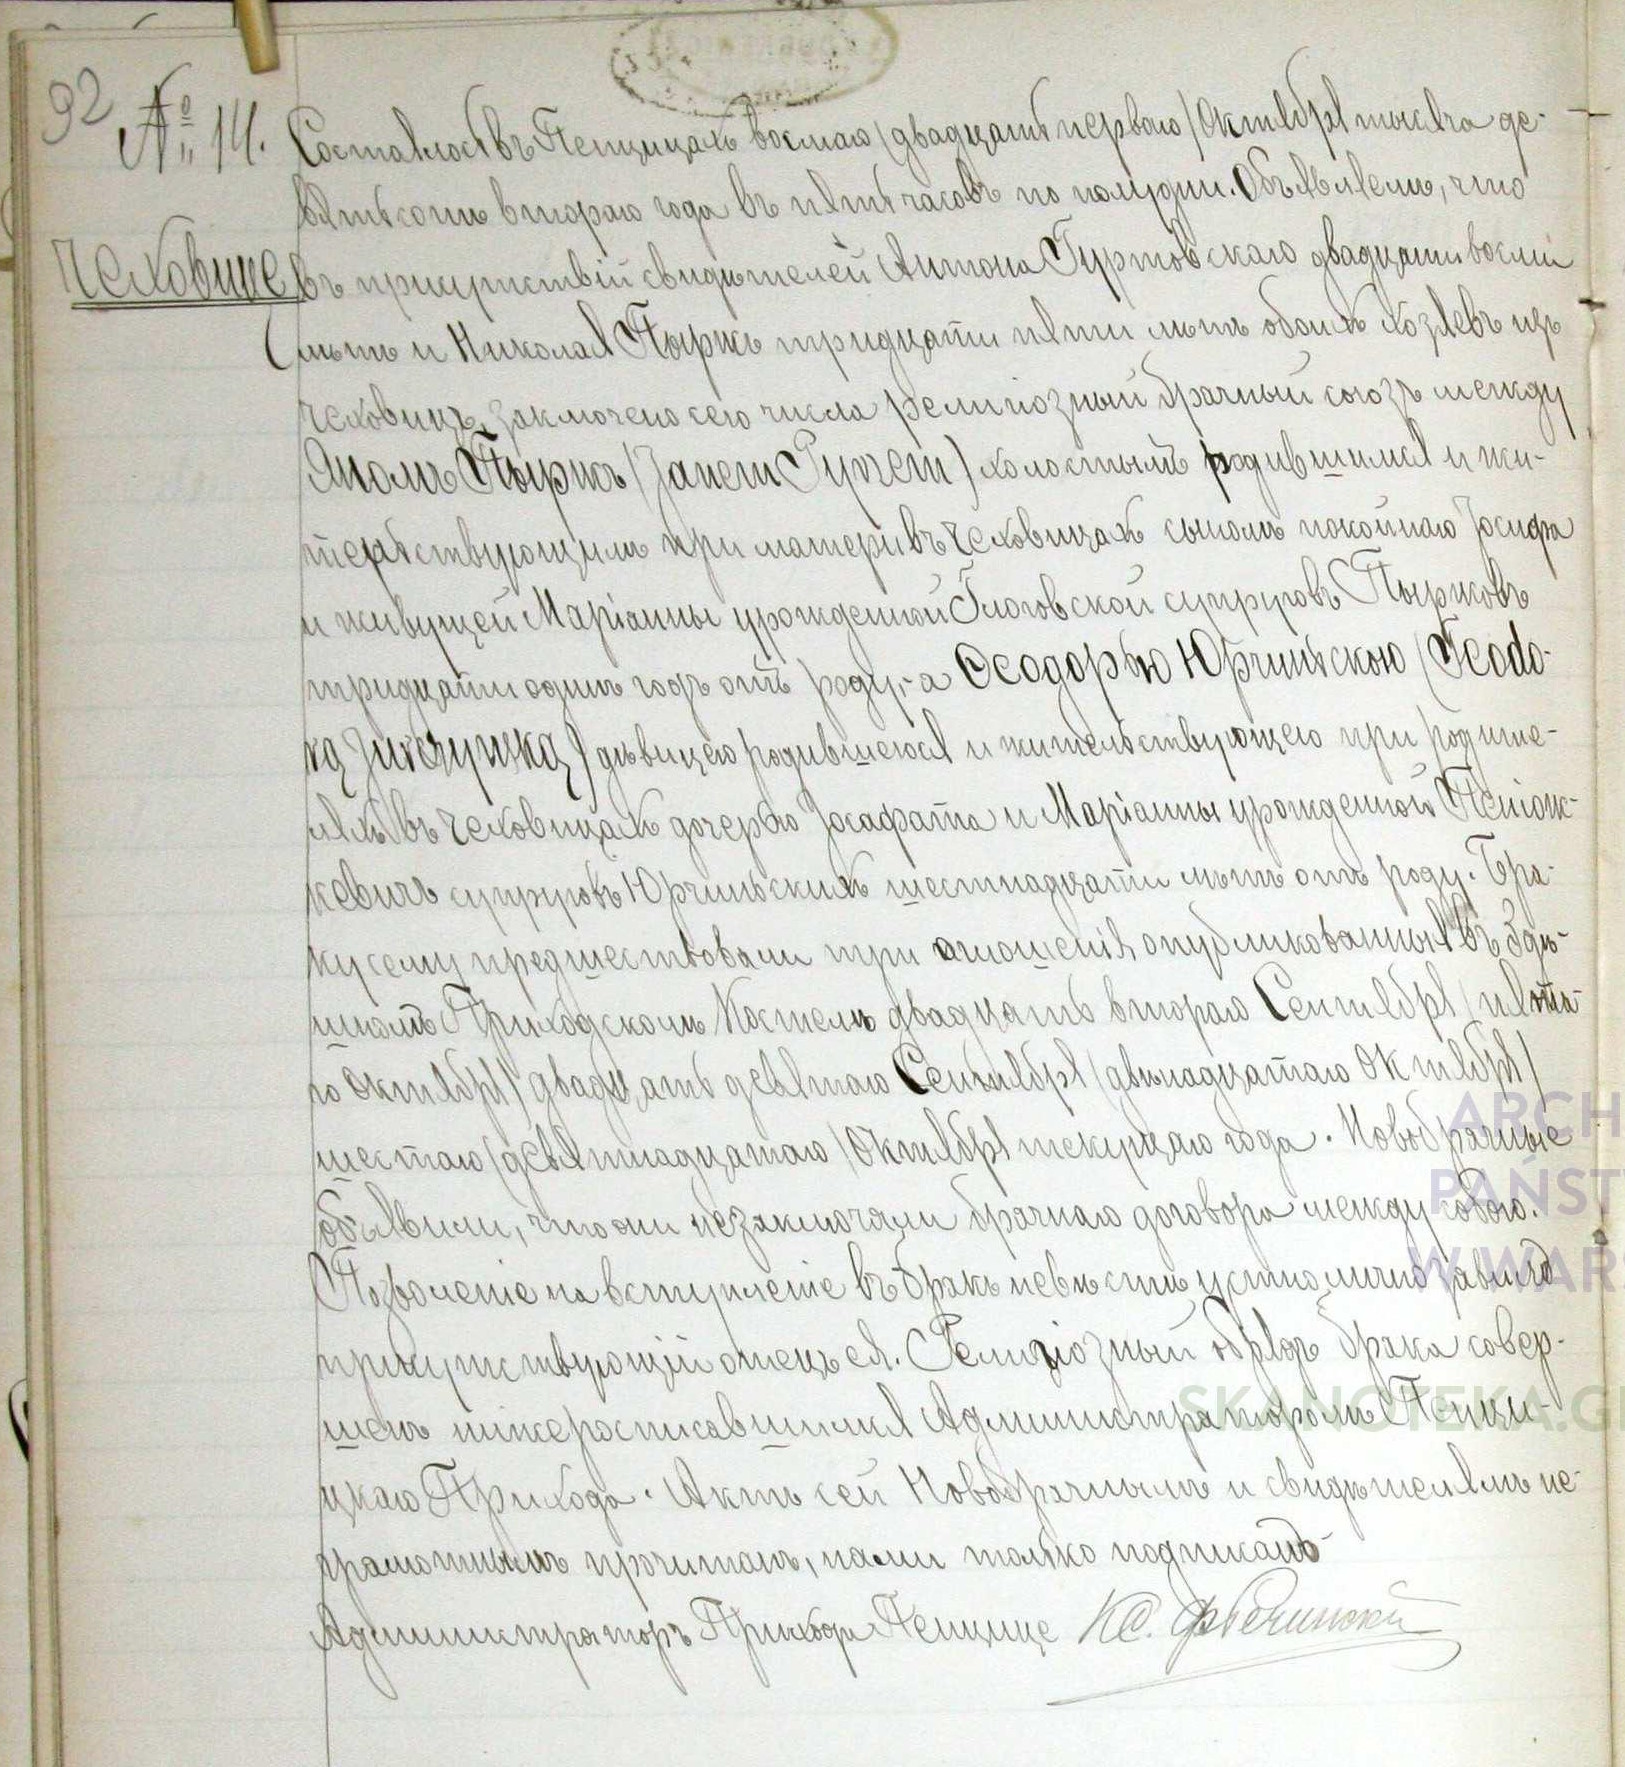 92
№ 14.
Чеховице
Состоялось въ Пенцицахъ восмаго /двадцать перваго/ Октября тысяча де-
вятьсотъ втораго года въ пять часовъ по полудни. Объявляемъ, что
въ присутствій свидѣтелей Антона Гуртовскаго двадцати восми
лѣтъ и Николая Пыржъ тридцати пяти лѣтъ обоихъ хозяевъ изъ
Чеховицъ, заключенъ сего числа религіозный брачный союзъ между
Яномъ Пыржъ (Janem Pyrzem) холостымъ родившимся и жи-
тельствующимъ при матери въ Чеховицахъ сыномъ покойнаго Іосифа
и живущей Маріанны урожденной Глоговской супруговъ Пыржовъ
тридцати одинъ годъ отъ роду, - а Ѳеодорѣю Юрчинскою (Teodo-
rą Jurczyńską) дѣвицею родившеюся и жительствующею при родите-
ляхъ въ Чеховицахъ дочерью Іосафата и Маріанны урожденной
кевичъ супруговъ Юрчинскихъ шестнадцати лѣтъ отъ роду. Бра-
ку сему предшествовали три оглошенія опубликованныя въ
Приходскомъ Костелѣ двадцать втораго Сентября /пята-
го Октября/ двадцать девятаго Сентября /двѣнадцатаго Октября/
шестаго /девятнадцатаго/ Октября текущаго года. Новобрачные
объявили, что они незаключали брачнаго договора между собою.
Позволеніе на вступленіе въ бракъ невѣсты устно лично заявилъ
присутствующій отецъ ея. Религіозный обрядъ брака совер-
шенъ нижеросписавшимся Администраторомъ Пенци-
цкаго Прихода. Актъ сей Новобрачнымъ и свидѣтелямъ не-
грамотнымъ прочитанъ, нами только подписанъ
Администраторъ Прихода Пенцице Кс.
ARCH
PAŃST
W WARS
SKANOTEKA.G